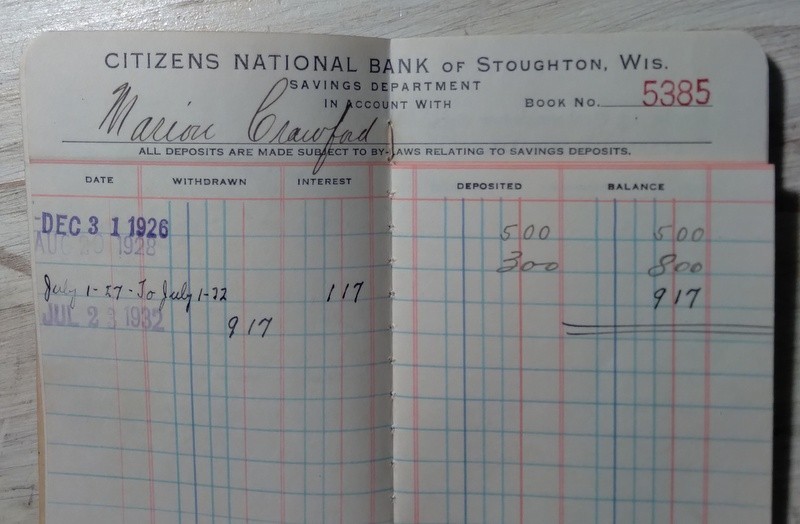 CITIZENS NATIONAL BANK OF STOUGHTON, WIS.
SAVINGS DEPARTMENT
IN ACCOUNT WITH
BOOK NO. 5385
Marion Crawford
ALL DEPOSITS ARE MADE SUBJECT TO BY-LAWS RELATING TO SAVINGS DEPOSITS.
DATE WITHDRAWN INTEREST DEPOSITED BALANCE
DEC 31 1926 500 500
AUG 20 1928 300 800
July 1-27-To July 1-32 117 917
JUL 23 1932 917